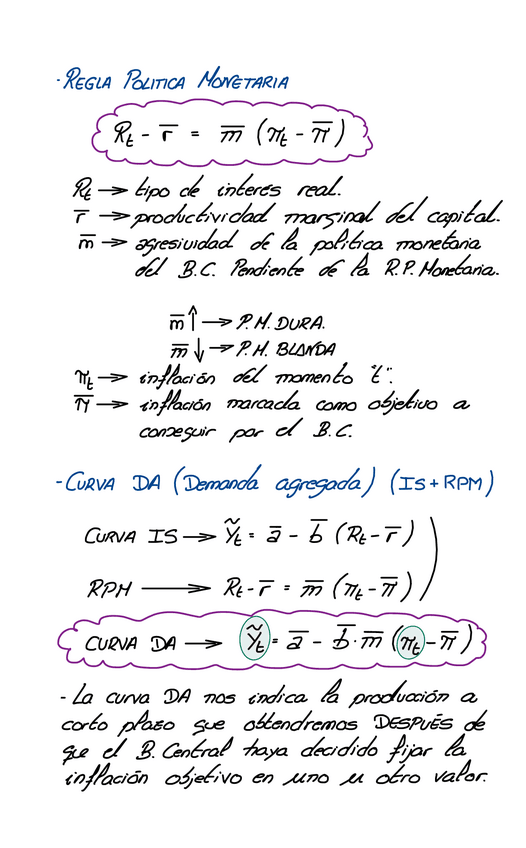 ·REGLA POLITICA MONETARIA
Rt - r̅ = m̅ (πt - π̅)
Rt → tipo de interes real.
r̅ → productividad marginal del capital.
m̅ → agresividad de la politica monetaria
del B.C. Pendiente de la R.P. Monetaria.
m̅↑ → P.M. DURA.
m̅↓ → P.M. BLANDA
πt → inflación del momento "t".
π̅ → inflación marcada como objetivo a
conseguir por el B.C.
-CURVA DA (Demanda agregada) (IS+RPM)
CURVA IS → Ỹt = a̅ - b̅ (Rt - r̅)
RPM → Rt - r̅ = m̅ (πt - π̅)
CURVA DA → Ỹt = a̅ - b̅·m̅ (πt - π̅)
- La curva DA nos indica la producción a
corto plazo que obtendremos DESPUÉS de
que el B. Central haya decidido fijar la
inflación objetivo en uno u otro valor.